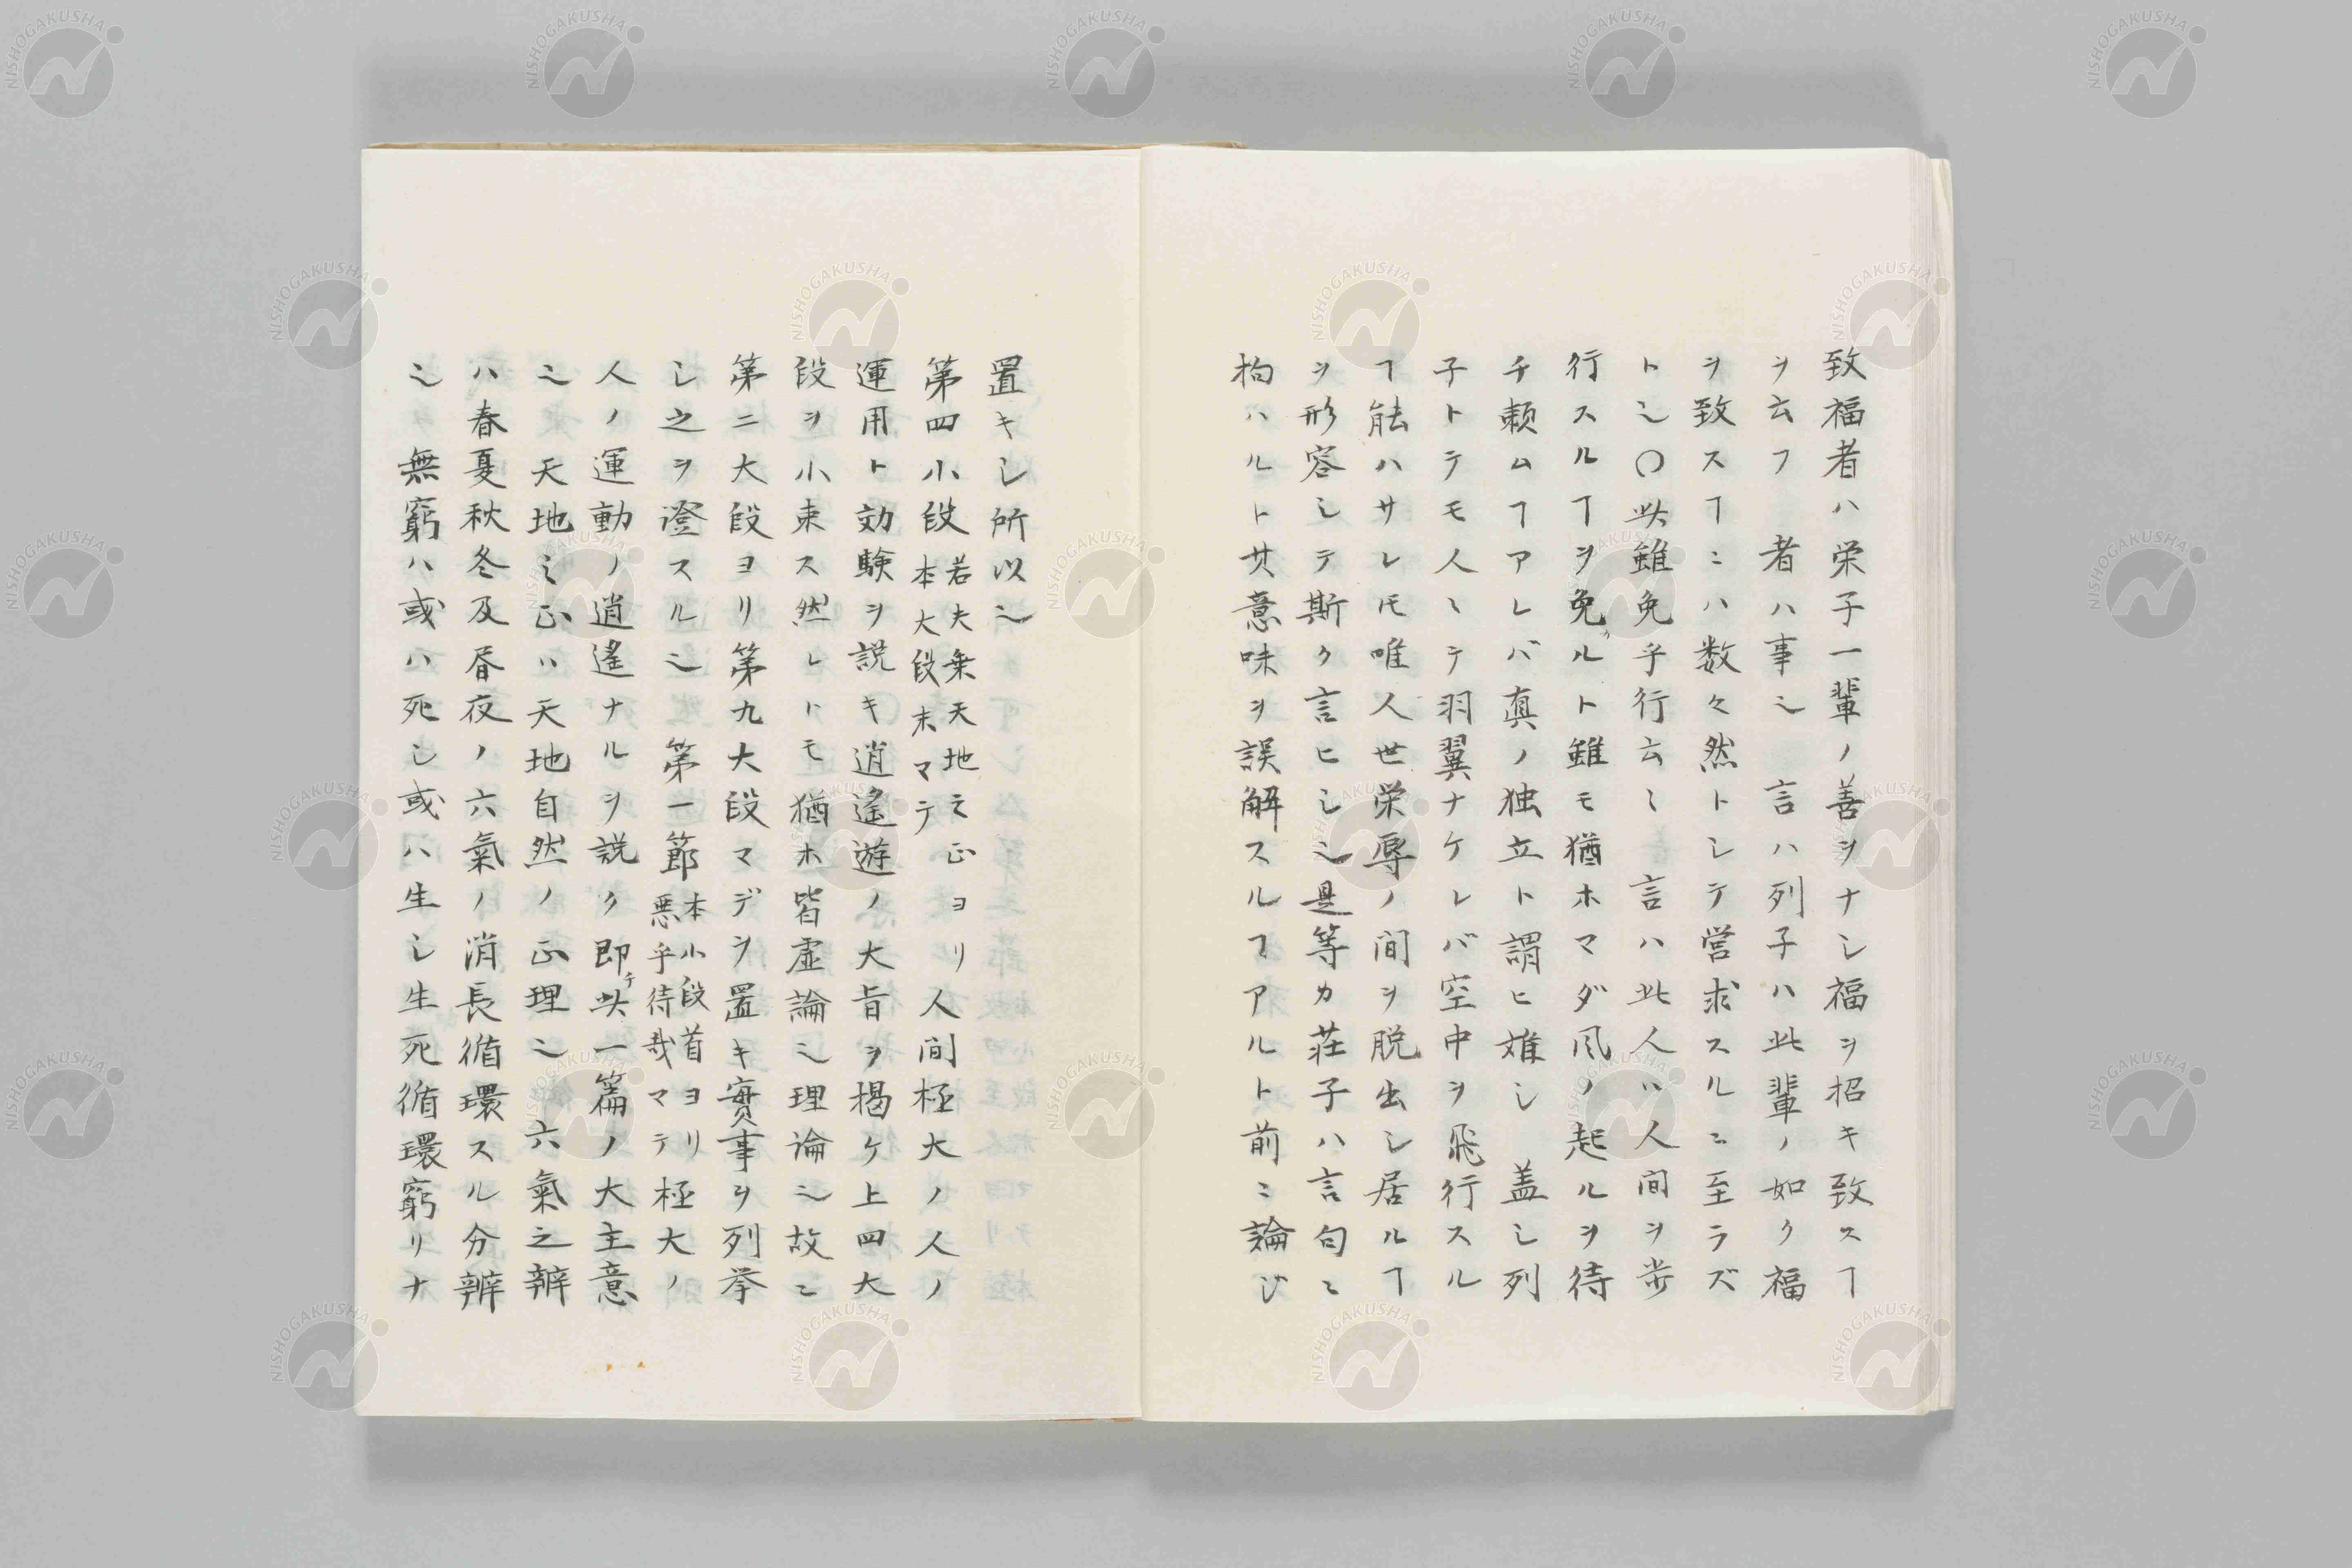 致福者ハ栄子一輩ノ善ヲナシ福ヲ招キ致スヿ
ヲ云フ 者ハ事〻 言ハ列子ハ此輩ノ如ク福
ヲ致スヿニハ数々然トシテ営求スルニ至ラズ
ト〻〇此雖免乎行云〻 言ハ此人ハ人間ヲ歩
行スルヿヲ免ルト雖モ猶ホマダ風ノ起ルヲ待
チ頼ムヿアレバ真ノ独立ト謂ヒ難シ 盖シ列
子トテモ人〻テ羽翼ナケレバ空中ヲ飛行スル
ヿ能ハサレ𪜈唯人世栄辱ノ間ヲ脱出シ居ルヿ
ヲ形容シテ斯ク言ヒシ〻是等カ荘子ハ言句ニ
拘ハルト其意味ヲ誤解スルヿアルト前ニ論じ
置キシ所以〻
第四小段若夫乗天地之正ヨリ本大段末マテ人間極大ノ人ノ
運用ト効験ヲ説キ逍遙遊ノ大旨ヲ掲ケ上四大
段ヲ小束ス然レトモ猶ホ皆虚論〻理論〻故ニ
第二大段ヨリ第九大段マデヲ置キ實事ヲ列挙
シ之ヲ證スル〻 第一節本小段首ヨリ悪乎待哉マテ極大ノ
人ノ運動ノ逍遙ナルヲ説ク即チ此一篇ノ大主意
〻 天地之正ハ天地自然ノ正理〻 六氣之辨
ハ春夏秋冬及昼夜ノ六氣ノ消長循環スル分辨
〻 無窮ハ或ハ死シ或ハ生シ生死循環窮リナ
NISHOGAKUSHA